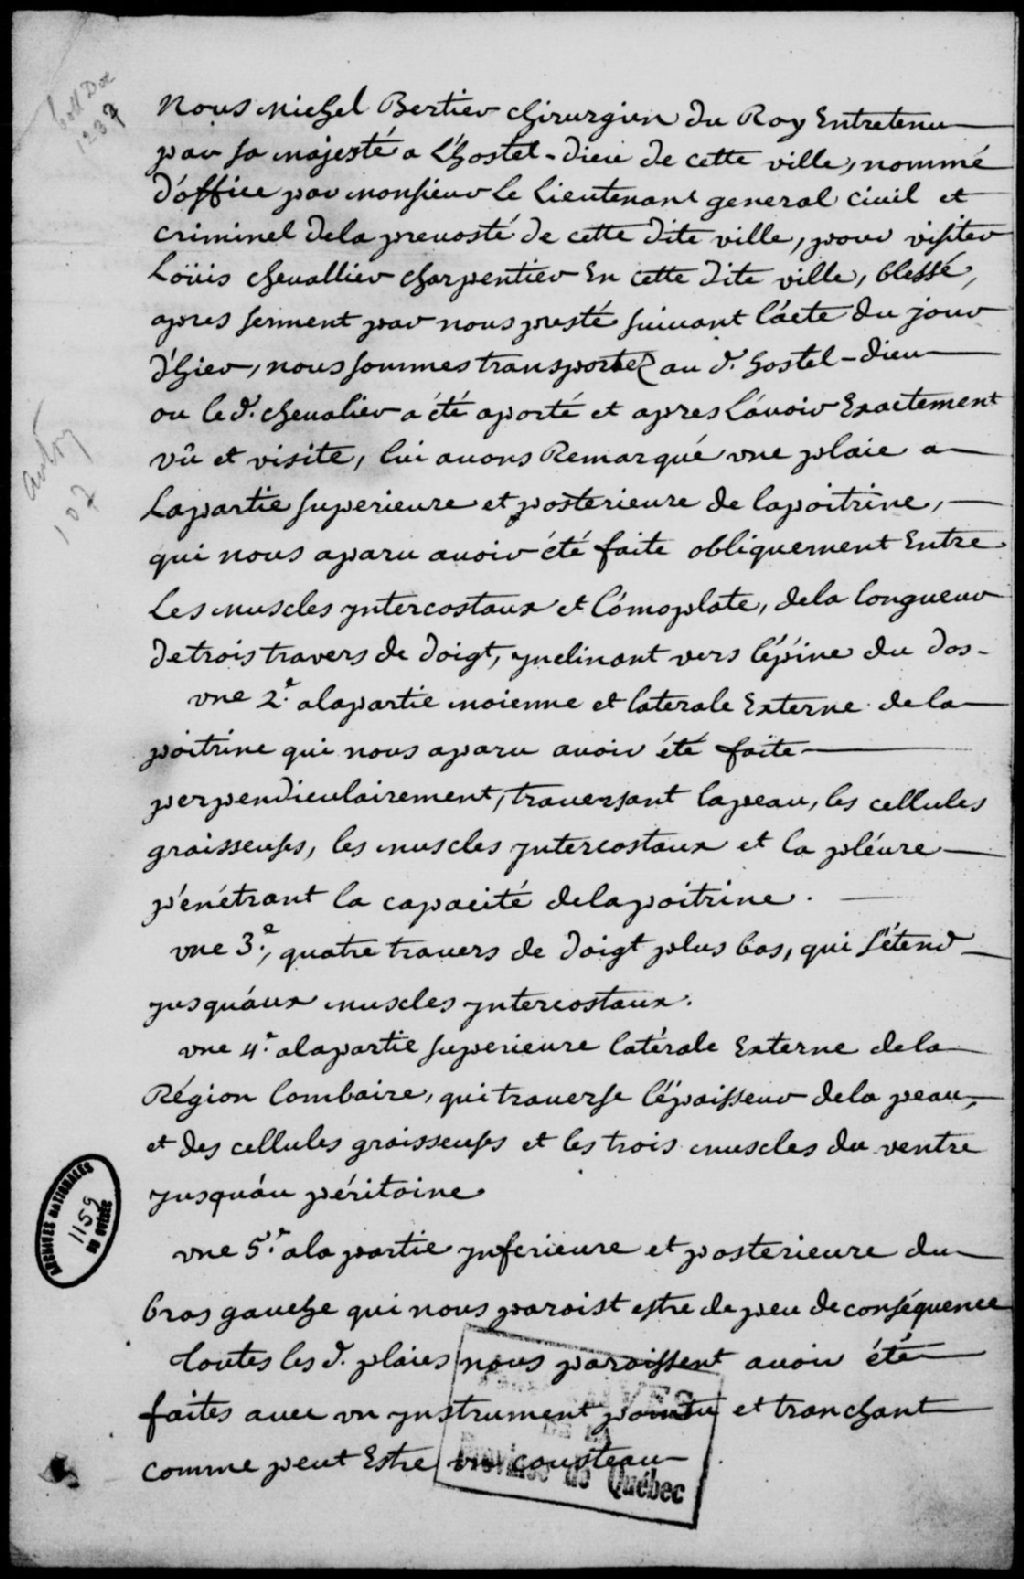 Coll Doc
1237
Nous Michel Bertier chirurgien du Roy Entretenu
par sa majesté a L'hostel-dieu de cette ville, nommé
d'office par monsieur Le Lieutenant general ciuil et
criminel dela preuosté de cette dite ville, pour visiter
Loüis cheuallier charpentier En cette dite ville, blessé,
apres serment par nous presté suiuant l'acte du jour
d'hier, nous sommes transportez au d. hostel-dieu
ou le d. cheualier a été aporté et apres L'auoir Exactement
vû et visite, lui auons Remarqué vne plaie a
Lapartie superieure et posterieure de lapoitrine,
qui nous aparu auoir été faite obliquement Entre
Les muscles yntercostaux et l'omoplate, dela longueur
de trois trauers de doigt, ynclinant vers l'épine du dos-
vne 2.e alapartie moienne et laterale Externe de la
poitrine qui nous aparu auoir été faite
perpendiculairement, trauersant lapeau, les cellules
graisseuses, les muscles yntercostaux et la pléure
pénétrant la capacité delapoitrine.
vne 3.e, quatre trauers de doigt plus bas, qui s'étend
jusqu'aux muscles yntercostaux.
vne 4.e alapartie superieure latérale Externe dela
Région lombaire, qui trauerse l'épaisseur dela peau,
et des cellules graisseuses et les trois muscles du ventre
jusqu'au péritoine
vne 5.e ala partie ynferieure et posterieure du
bras gauche qui nous paroist estre de peu de conséquence
toutes les d. plaies nous paroissent auoir été
faites auec vn ynstrument pointu et tranchant
comme peut Estre vn cousteau
107
ARCHIVES NATIONALES
1159
DU QUÉBEC
ARCHIVES
DE LA
Province de Québec